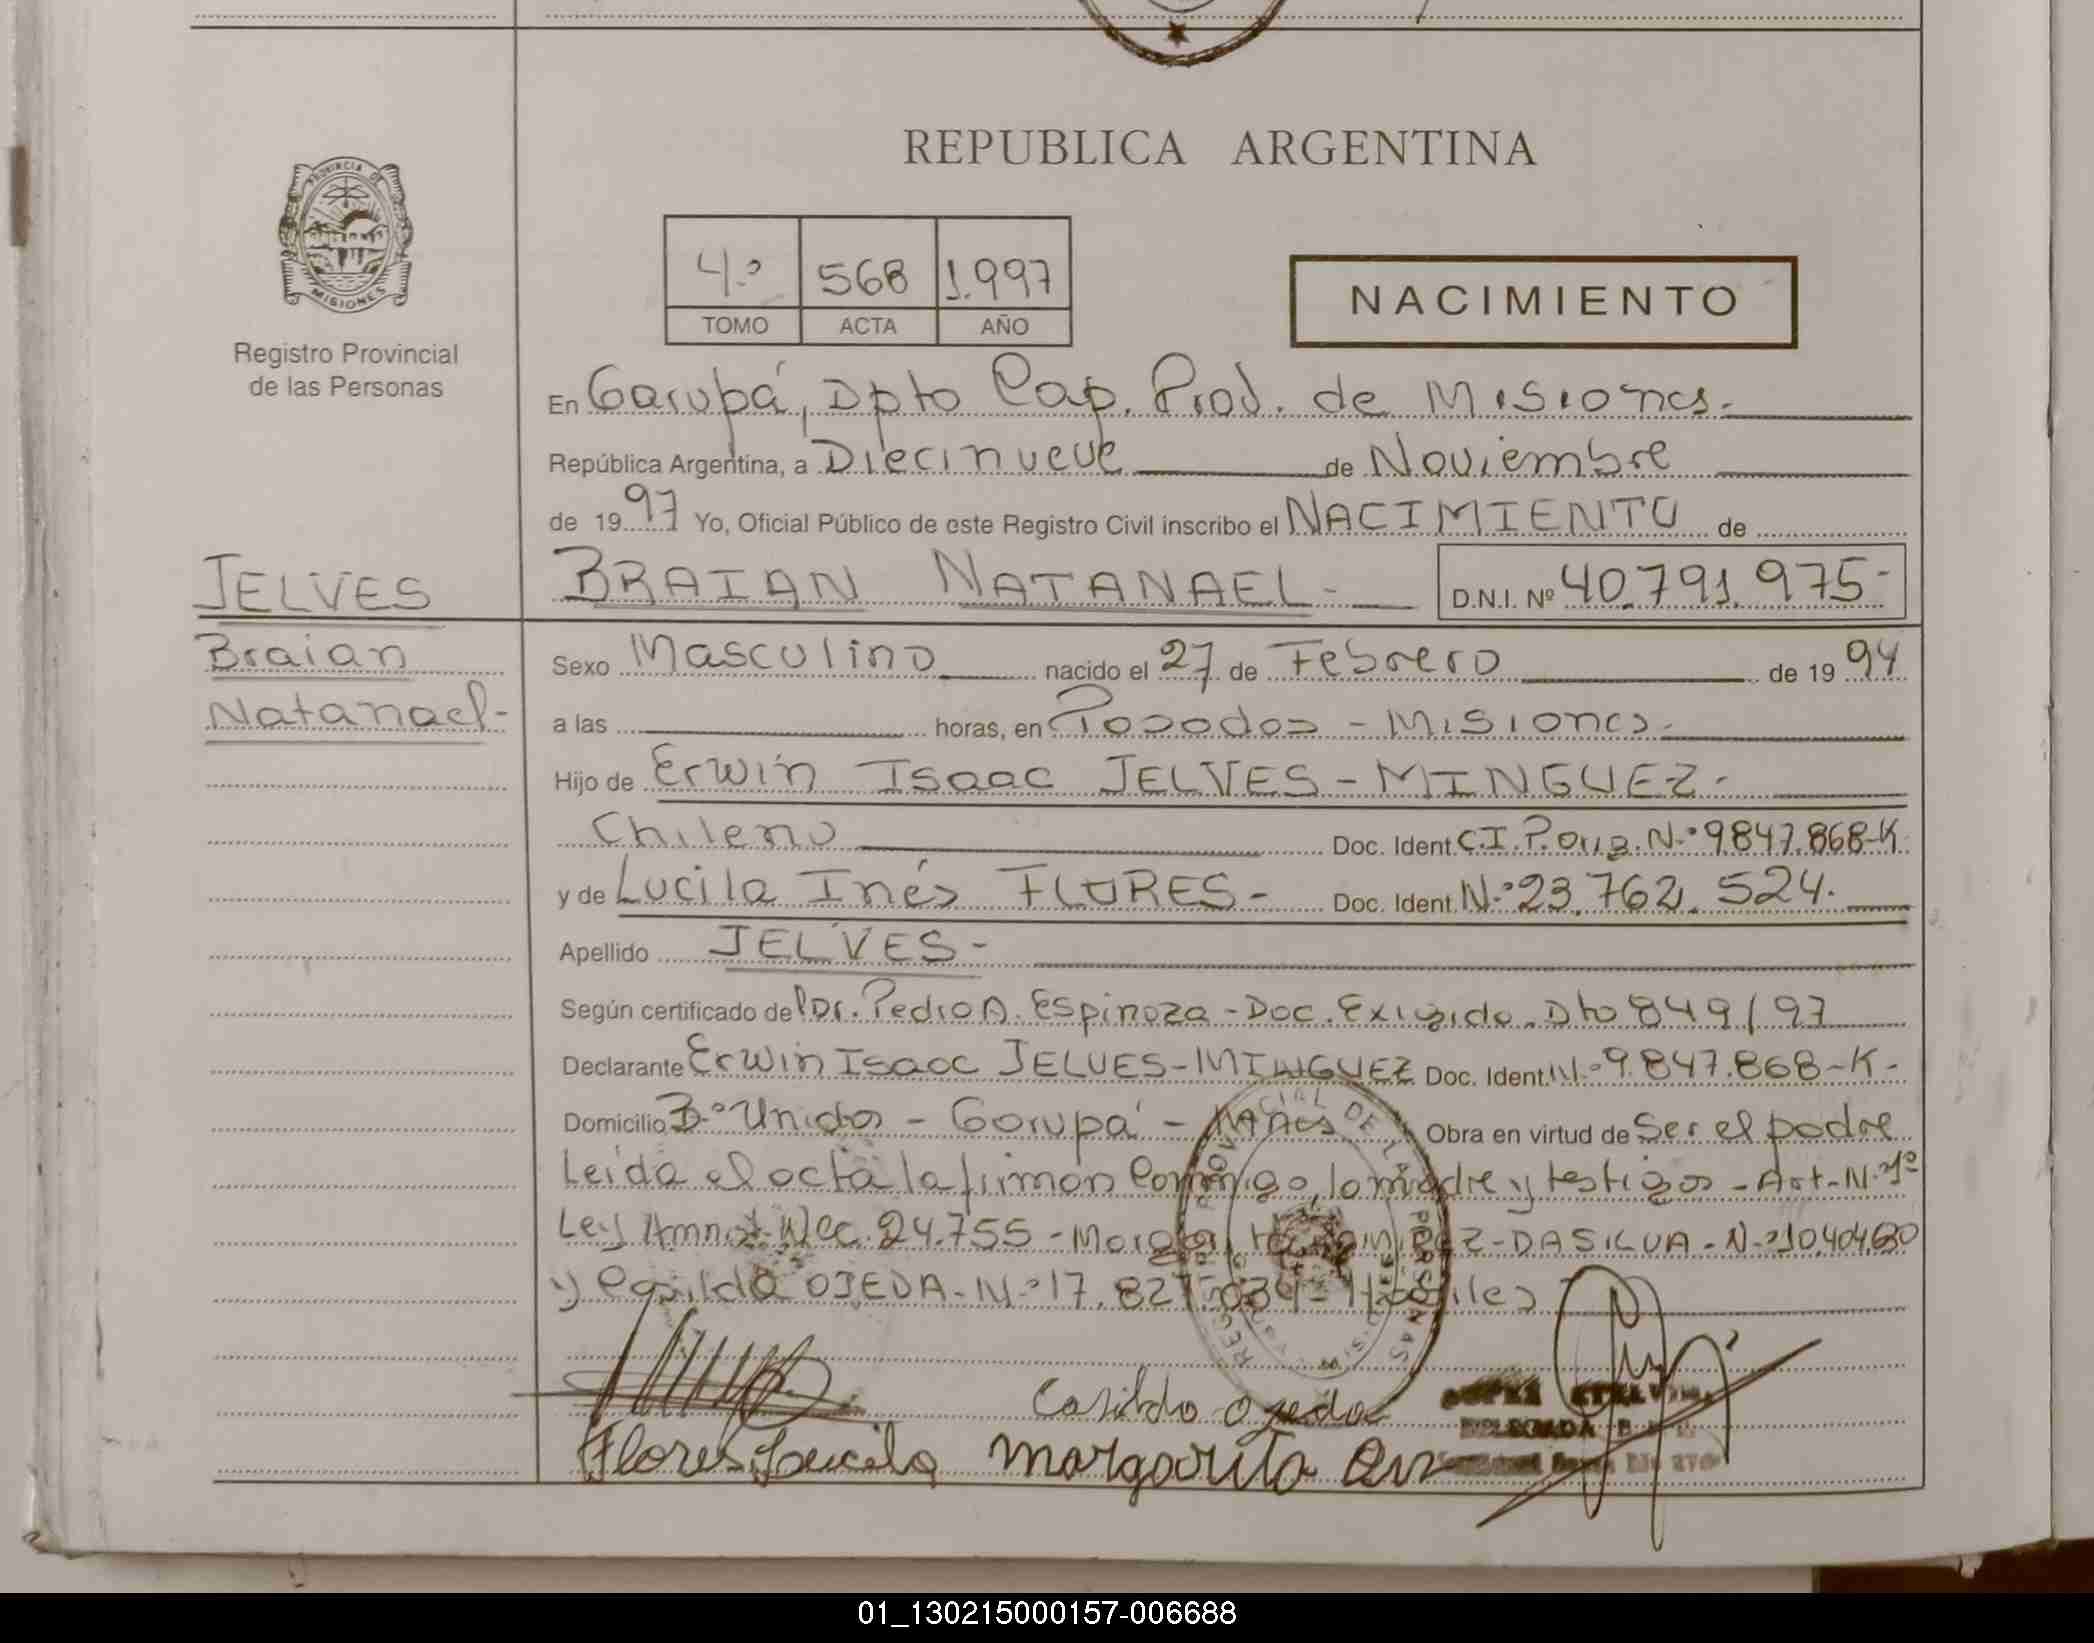 REPUBLICA ARGENTINA
PROVINCIA DE
MISIONES
Registro Provincial
de las Personas
4.º 568 1.997
TOMO ACTA AÑO
NACIMIENTO
En Garupá, Dpto Cap. Prov. de Misiones.-
República Argentina, a Diecinueve de Noviembre
de 1997 Yo, Oficial Público de este Registro Civil inscribo el NACIMIENTO de
JELVES
Braian
Natanael-
BRAIAN NATANAEL- D.N.I. Nº 40.791.975-
Sexo Masculino nacido el 27 de Febrero de 1994
a las horas, en Posadas - Misiones.
Hijo de Erwin Isaac JELVES-MINGUEZ-
Chileno Doc. Ident. C.I. N.º 9.847.868-K
y de Lucila Inés FLORES- Doc. Ident. N.º 23.762.524.
Apellido JELVES-
Según certificado del Dr. Pedro A. Espinoza - Doc. Exigido. Dto 849/97
Declarante Erwin Isaac JELVES-MINGUEZ Doc. Ident. N.º 9.847.868-K-
Domicilio Bº Unidos - Garupá - Mnes Obra en virtud de Ser el padre
Leida el acta la firman Conmigo, la madre y testigos - Art. N.º 1º
Ley Nac. 24.755 - DASILVA - N.º
y Casildo OJEDA - N.º 17.827. - Hábiles
Casildo Ojeda
DELEGADA
Flores Lucila margarita
01_130215000157-006688